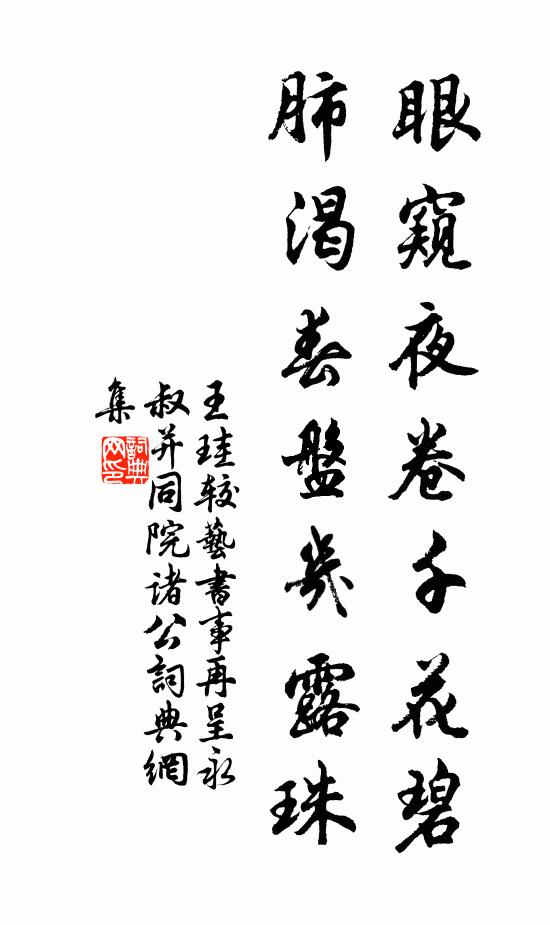 眼窺夜卷千花碧
肺渴春盤幾露珠
王珪较藝書事再呈永
叔并同院诸公詞典網
集
詞典網印